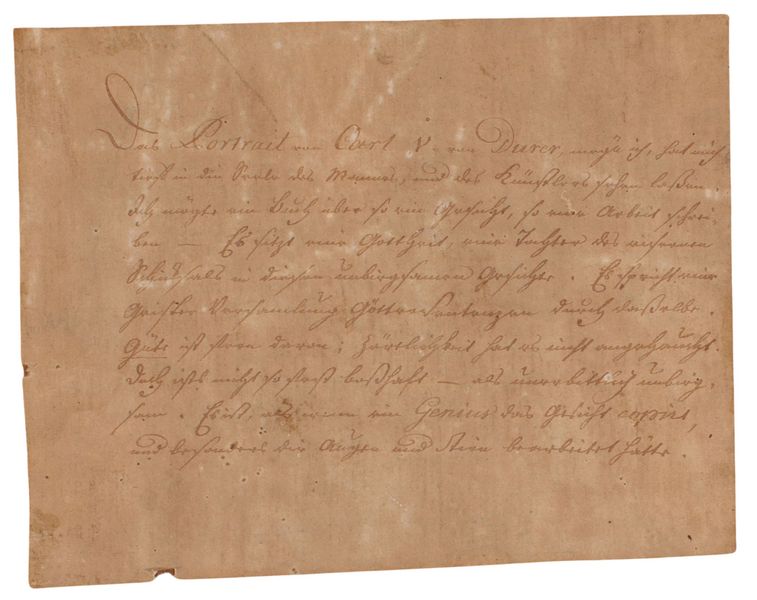 Das Portrait von Carl V. von Dürer, möge ich, hat mich
tief in die Seele des Mannes, und des Künstlers sehen laßen.
Ich mögte ein Buch über so ein Gesicht, so eine Arbeit schrei-
ben — Es sitzt eine Gottheit, eine Tochter des eisernen
Schicksals in diesem unbiegsamen Gesichte. Es spricht eine
Geister Versamlung Götter durch daßelbe.
Güte ist fern davon; Zärtlichkeit hat es nicht angehaucht.
Doch ists nicht so boßhaft — als unerbittlich unbieg-
sam. Es ist, als wenn ein Genius das Gesicht copirt,
und besonders die Augen und Stirn bearbeitet hätte.